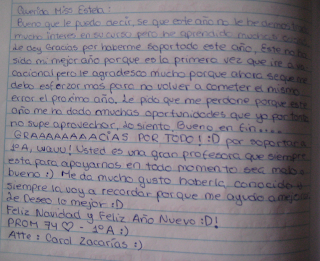 Querida Miss Estela:
Bueno que le puedo decir, se que este año no le he demostrado
mucho interes en su curso pero he aprendido mucho,
Le doy Gracias por haberme soportado este año, Este no ha
sido mi mejor año porque es la primera vez que iré a
cacional pero le agradesco mucho porque ahora se que me
debo esforzar mas para no volver a cometer el mismo
error el proximo año, Le pido que me perdone porque este
año me ha dado muchas oportunidades que yo
no supe aprovechar, lo siento Bueno en fin....
GRAAAAAAACIAS POR TODO! :D por soportar a
1ºA, wauu! Usted es una gran profesora que siempre
esta para apoyarnos en todo momento sea malo o
bueno :) Me da mucho gusto haberla conocido
siempre la voy a recordar por que me ayudo a mejorar
Le Deseo lo mejor :D
Feliz Navidad y Feliz Año Nuevo :D!
PROM 74 ♡ - 1ºA :)
Atte: Carol Zacarías :)